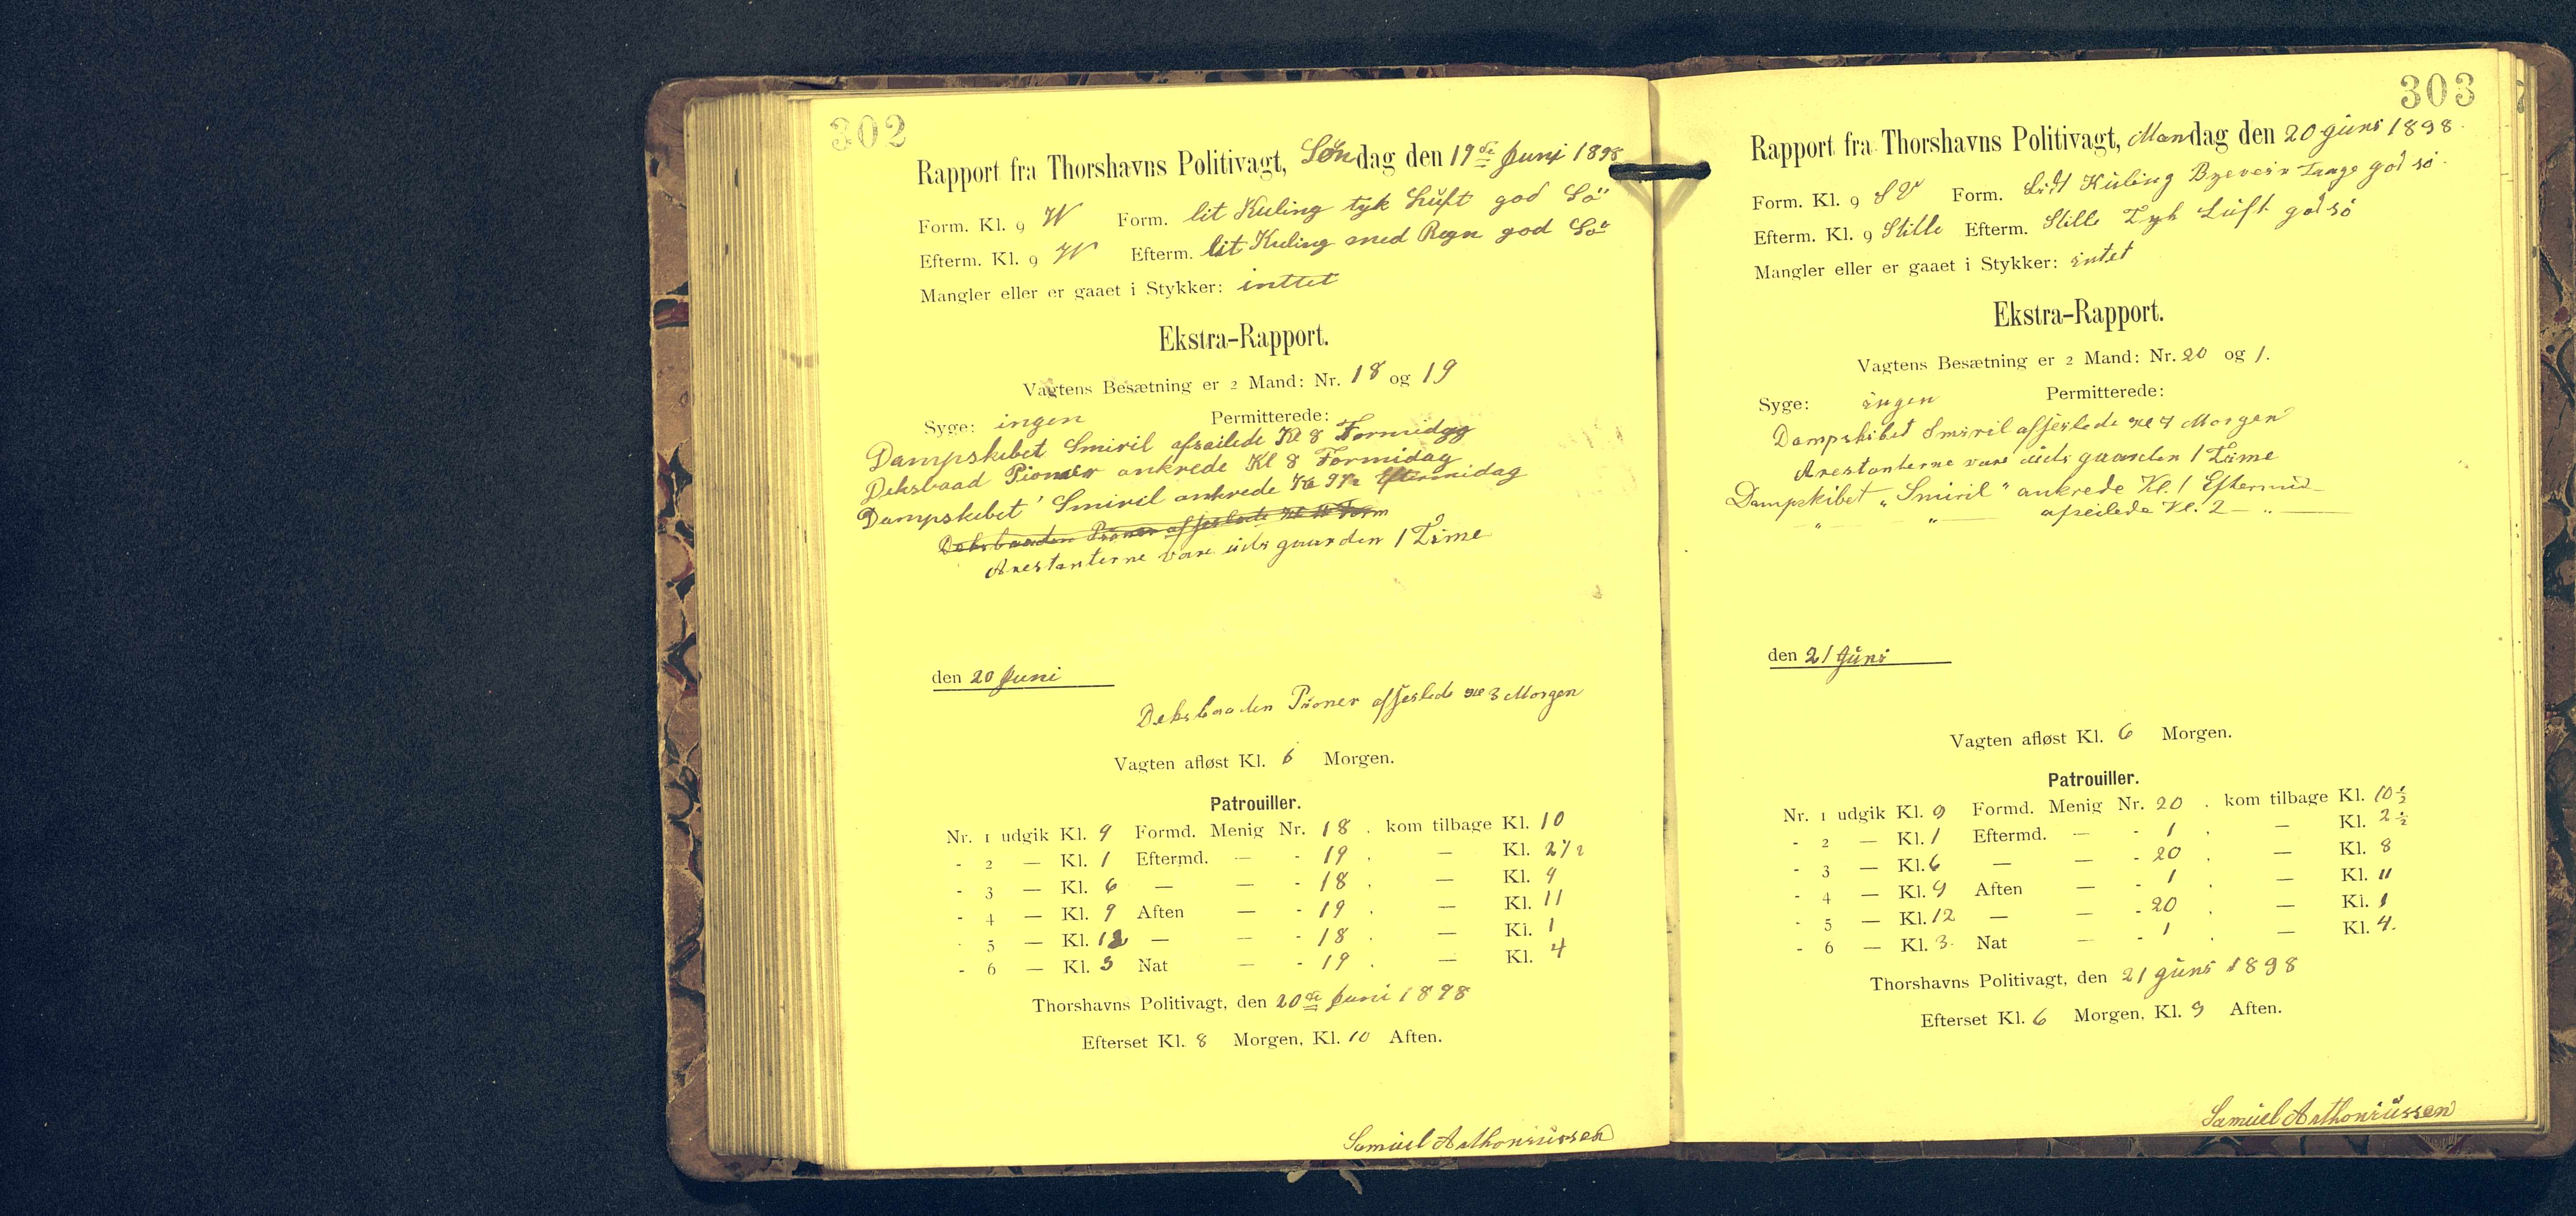 302
Rapport fra Thorshavns Politivagt, Søndag den 19de Juni 1898
Form. Kl. 9 W Form. lit Kuling tyk Luft god Sö
Efterm. Kl. 9 W Efterm. lit Kuling med Regn god Sö
Mangler eller er gaaet i Stykker: inttet
Ekstra-Rapport.
Vagtens Besætning er 2 Mand: Nr. 18 og 19
Syge: ingen Permitterede:
Dampskibet Smiril afsailede Kl 8 Formidag
Deksbaad Pioner ankrede Kl 8 Formidag
Dampskibet Smiril ankrede Kl 9 1/2 Eftermidag
Deksbaaden Pioner afseslede Kl Form
Arestanterne vare udi gaarden 1 Time
den 20 Juni
Deksbaaden Pioner afseslede Kl 3 Morgen
Vagten afløst Kl. 6 Morgen.
Patrouiller.
Nr. 1 udgik Kl. 9 Formd. Menig Nr. 18 . kom tilbage Kl. 10
- 2 — Kl. 1 Eftermd. — - 19 . — Kl. 2 1/2
- 3 — Kl. 6 — — - 18 . — Kl. 9
- 4 — Kl. 9 Aften — - 19 . — Kl. 11
- 5 — Kl. 12 — — - 18 . — Kl. 1
- 6 — Kl. 3 Nat — - 19 . — Kl. 4
Thorshavns Politivagt, den 20de Juni 1898
Efterset Kl. 8 Morgen, Kl. 10 Aften.
Samuel Anthoniussen
303
Rapport fra Thorshavns Politivagt, Mandag den 20 Juni 1898.
Form. Kl. 9 SV Form. Lidt Kuling Byeveir Taage god sö.
Efterm. Kl. 9 Stille Efterm. Stille Tyk Luft god sö
Mangler eller er gaaet i Stykker: intet
Ekstra-Rapport.
Vagtens Besætning er 2 Mand: Nr. 20 og 1.
Syge: ingen Permitterede:
Dampskibet Smiril afseslede Kl 7 Morgen
Arestanterne vare udi gaarden 1 Time
Dampskibet „Smiril" ankrede Kl. 1 Eftermid—
„ — „ — afseilede Kl. 2 — „ —
den 21 Juni
Vagten afløst Kl. 6 Morgen.
Patrouiller.
Nr. 1 udgik Kl. 9 Formd. Menig Nr. 20 . kom tilbage Kl. 10 1/2
- 2 — Kl. 1 Eftermd. — - 1 . — Kl. 2 1/2
- 3 — Kl. 6 — — - 20 . — Kl. 8
- 4 — Kl. 9 Aften — - 1 . — Kl. 11
- 5 — Kl. 12 — — - 20 . — Kl. 1
- 6 — Kl. 3 Nat — - 1 . — Kl. 4.
Thorshavns Politivagt, den 21 Juni 1898
Efterset Kl. 6 Morgen, Kl. 9 Aften.
Samuel Anthoniussen